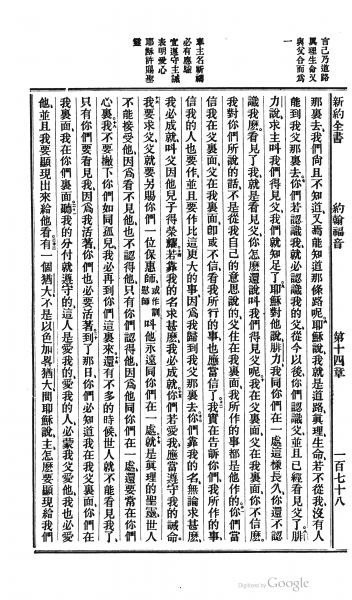 新約全書 約翰福音 第十四章 一百七十八
言己乃道路
眞理生命又
與父合而爲
一
奉主名祈禱
必有應驗
宜遵守主誡
表明愛心
耶穌許賜聖
靈
那裏去、我們尙且不知道、又焉能知道那條路呢、耶穌說、我就是道路眞理生命、若不從我、沒有人
能到我父那裏去、你們若認識我、就必認識我的父、從今以後、你們認識父、並且已經看見父了、腓
力說、求主叫我們得見父、我們就知足了、耶穌對他說、腓力、我同你們在一處這樣長久、你還不認
識我麽、看見了我、就是看見父、你怎麽還說叫我們得見父呢、我在父裏面、父在我裏面、你不信麽、
我對你們所說的話、不是從我自己的意思說的、父在我裏面、我所作的事、都是他作的、你們當
信我在父裏面、父在我裏面、卽或不信、看我所行的事、也應當信了、我實在吿訴你們、我所作的事、
信我的人也要作、並且要作比這更大的事、因爲我歸到我父那裏去、你們靠我的名、無論求甚麽、
我必成就、叫父因他兒子得榮耀、若靠我的名求甚麽、我必成就、你們若愛我、應當遵守我的誡命、
我要求父、父就要另賜你們一位保惠師、或作訓慰師 叫他永遠同你們在一處、就是眞理的聖靈、世人
不能接受他、因爲看不見他、也不認得他、只有你們認得他、因爲他同你們在一處、還要常在你們
心裏、我不要撇下你們如同孤兒、我必再到你們這裏來、還有不多的時候、世人就不能看見我了、
只有你們要看見我、因爲我活著、你們也必要活著、到了那日、你們必知道我在我父裏面、你們在
我裏面、我在你們裏面、聽我的分付就遵守的、這人是愛我的、愛我的人、必蒙我父愛他、我也必愛
他、並且我要顯現出來給他看、有一個猶大、不是以色加畧猶大、問耶穌說、主、怎麽要顯現給我們
Digitized by Google